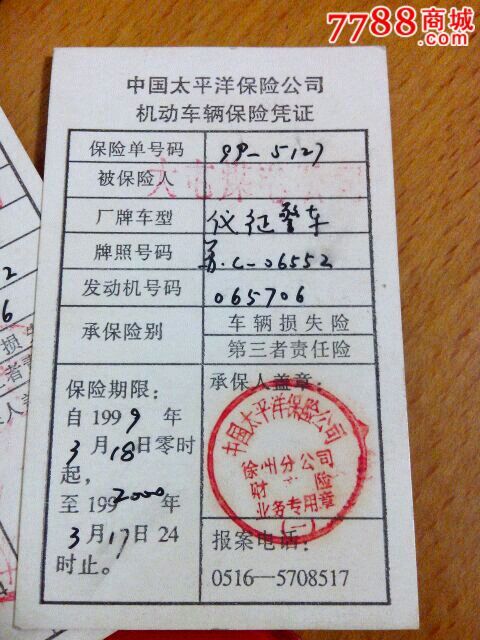 7788商城
中国太平洋保险公司
机动车辆保险凭证
保险单号码 99-5127
被保险人
厂牌车型 仪征警车
牌照号码 苏.C-06552
发动机号码 065706
承保险别 车辆损失险
第三者责任险
保险期限：
自 1999 年
3月18日零时
起，
至 199 2000 年
3月17日 24
时止。
承保人盖章：
中国太平洋保险公司
徐州分公司
财 险
业务专用章
（一）
报案电话：
0516—5708517